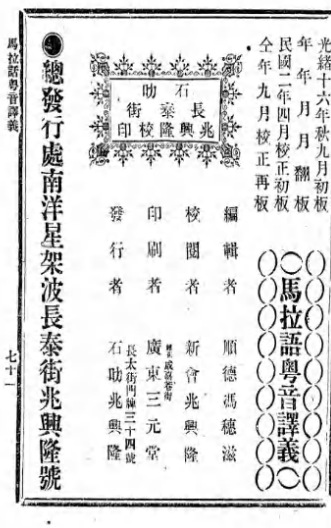 光緒十六年秋九月初板
年年月月翻板
民國二年四月校正初板
仝年九月校正再板
馬拉語粵音譯義
石叻
長泰街
兆興隆校印
編輯者 順德馮穗滋
校閱者 新會兆興隆
印刷者 廣東三元堂
發行者 長太街門牌三十四號
石叻兆興隆
總發行處南洋星架波長泰街兆興隆號
馬拉話粵音譯義 七十一